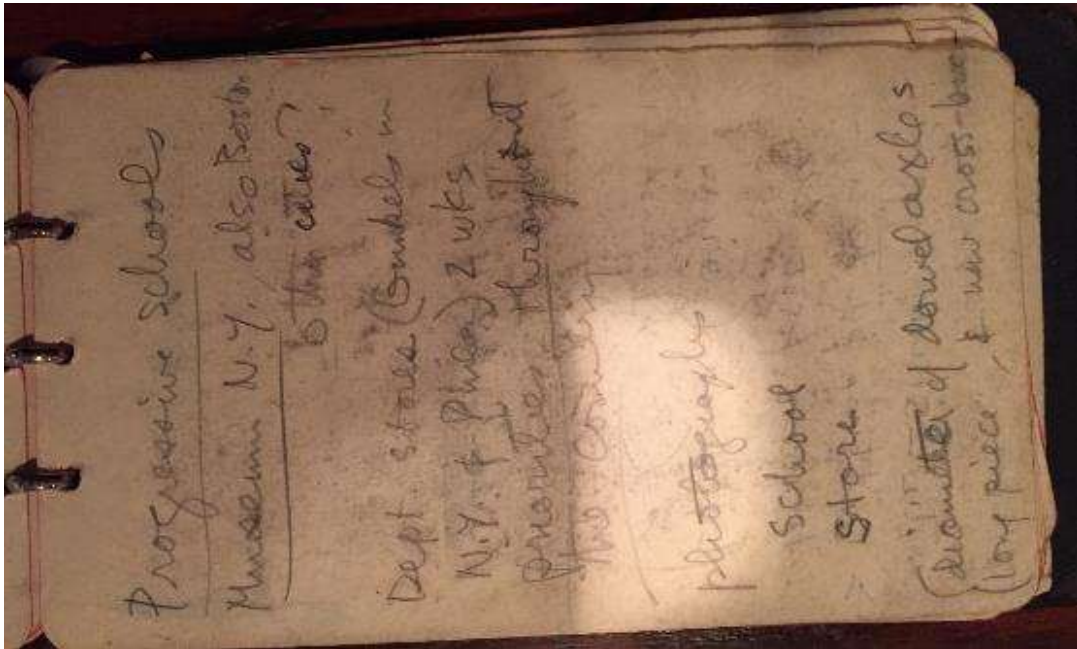 Progressive Schools
Museum N.Y., also Boston
& other cities?
Dept. stores (Bambergers in
N.Y. & Phila) 2 wks
priorities throughout
the country
photographs
School
Store
(diameter of dowel axles
(toy piece, & new cross-bar-